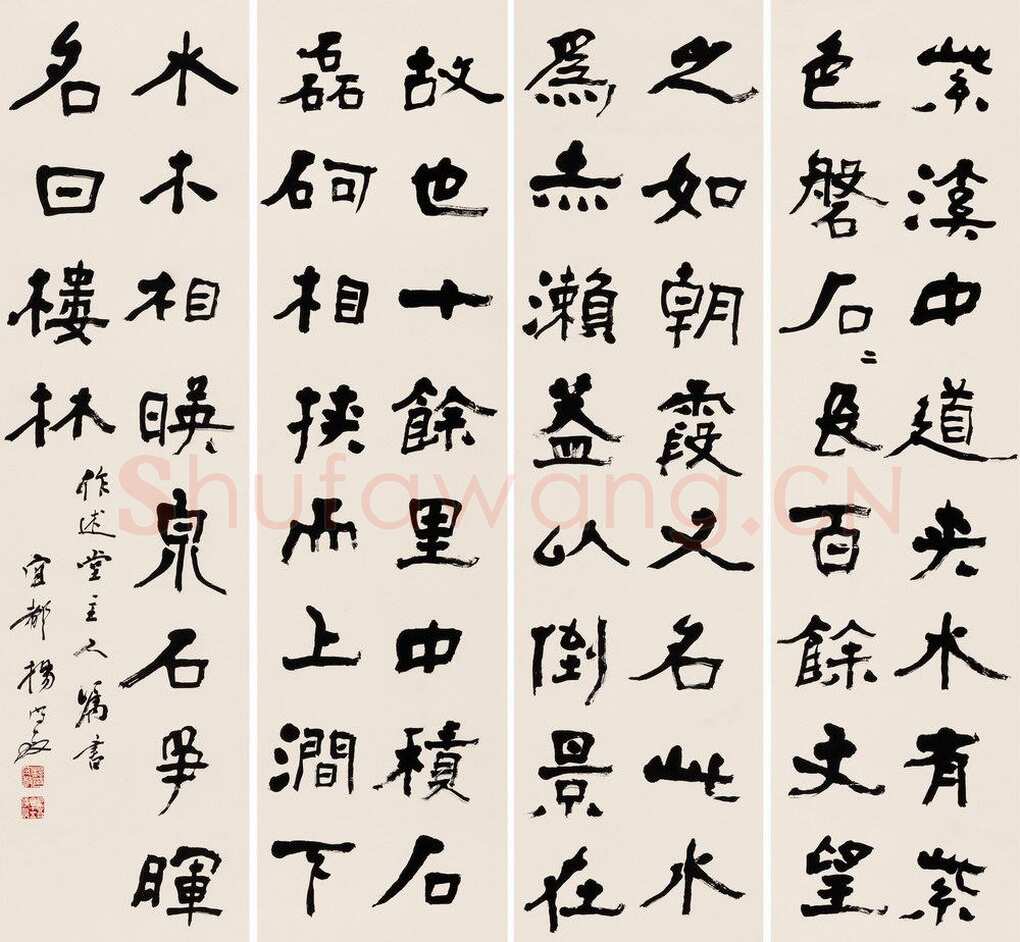 紫溪中道夾水有紫
色磐石〻長百餘丈望
之如朝霞又名此水
爲赤瀨蓋以倒景在
故也十餘里中積石
磊砢相挾而上澗下
水木相暎泉石爭暉
名曰樓林
作述堂主人屬書
宜都楊守敬
Shufawang.CN